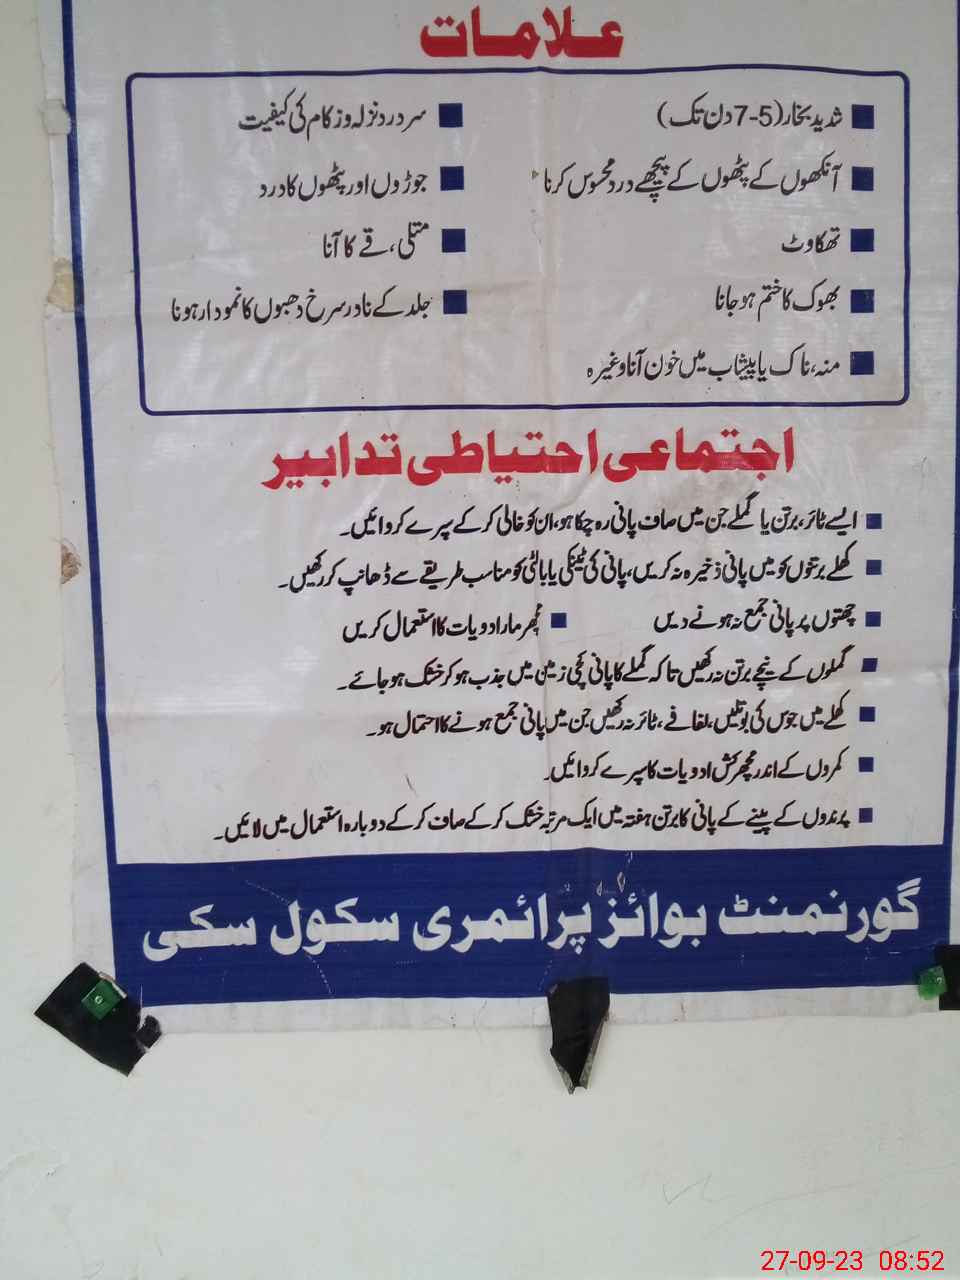 علامات
شدید بخار (5-7 دن تک)
سر درد نزلہ و زکام کی کیفیت
آنکھوں کے پٹھوں کے پیچھے درد محسوس کرنا
جوڑوں اور پٹھوں کا درد
تھکاوٹ
متلی، قے کا آنا
بھوک کا ختم ہو جانا
جلد کے نادر سرخ دھبوں کا نمودار ہونا
منہ، ناک یا پیشاب میں خون آنا وغیرہ
اجتماعی احتیاطی تدابیر
ایسے ٹائر، برتن یا گملے جن میں صاف پانی رہ چکا ہو، ان کو خالی کر کے سپرے کروائیں۔
کھلے برتنوں کو میں پانی ذخیرہ نہ کریں، پانی کی ٹینکی یا بالٹی کو مناسب طریقے سے ڈھانپ کر رکھیں۔
چھتوں پر پانی جمع نہ ہونے دیں
مچھر مار ادویات کا استعمال کریں
گملوں کے نیچے برتن نہ رکھیں تا کہ گملے کا پانی کچی زمین میں جذب ہو کر خشک ہو جائے۔
کھلے میں جوس کی بوتلیں، لفافے، ٹائر نہ رکھیں جن میں پانی جمع ہونے کا احتمال ہو۔
کمروں کے اندر مچھر کش ادویات کا سپرے کروائیں۔
پرندوں کے پینے کے پانی کا برتن ہفتہ میں ایک مرتبہ خشک کر کے صاف کر کے دوبارہ استعمال میں لائیں۔
گورنمنٹ بوائز پرائمری سکول سکی
27-09-23 08:52